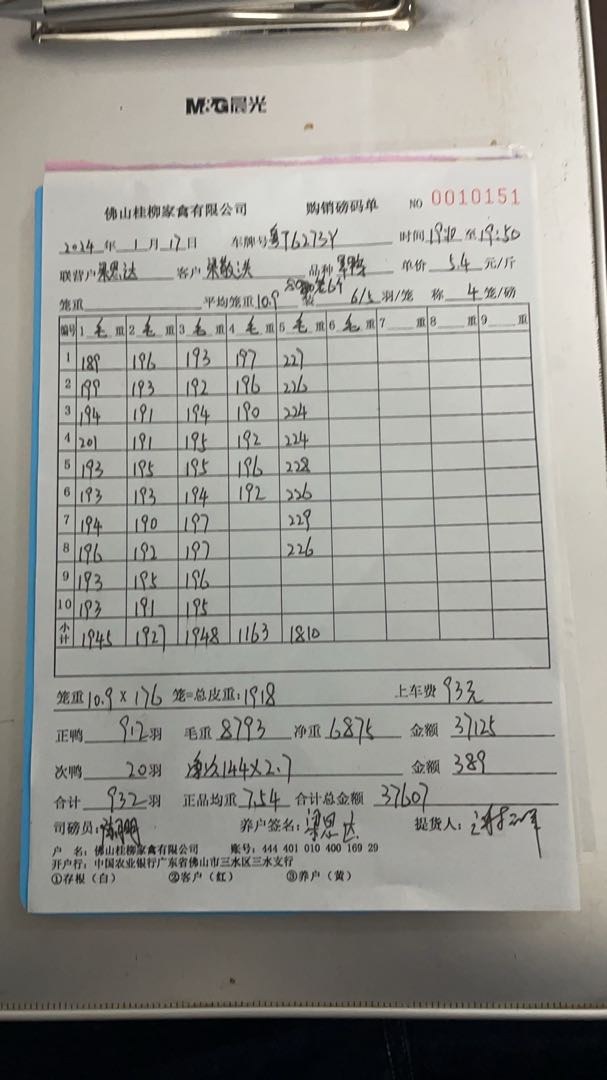 M&G晨光
佛山桂柳家禽有限公司 购销磅码单 NO 0010151
2024年 1月 17日 车牌号粤T6273Y 时间19:10至19:50
联营户梁恩达 客户 品种 单价 5.4 元/斤
笼重 平均笼重10.9 装 6/5 羽/笼 称 4 笼/磅
编号 1 毛 重 2 毛 重 3 毛 重 4 毛 重 5 毛 重 6 毛 重 7 重 8 重 9 重
1 189 196 193 197 227
2 199 193 192 196 226
3 194 191 194 190 224
4 201 191 195 192 224
5 193 195 195 196 228
6 193 193 194 192 226
7 194 190 197 229
8 196 192 197 226
9 193 195 196
10 193 191 195
小计 1945 1927 1948 1163 1810
笼重10.9×176 笼=总皮重:1918 上车费 93元
正鸭 912羽 毛重 8793 净重 6875 金额 37125
次鸭 20羽 144×2.7 金额 389
合计 932羽 正品均重 7.54 合计总金额 37607
司磅员: 养户签名:梁恩达 提货人:
户 名:佛山桂柳家禽有限公司 账号:444 401 010 400 169 29
开户行:中国农业银行广东省佛山市三水区三水支行
①存根(白) ②客户(红) ③养户(黄)